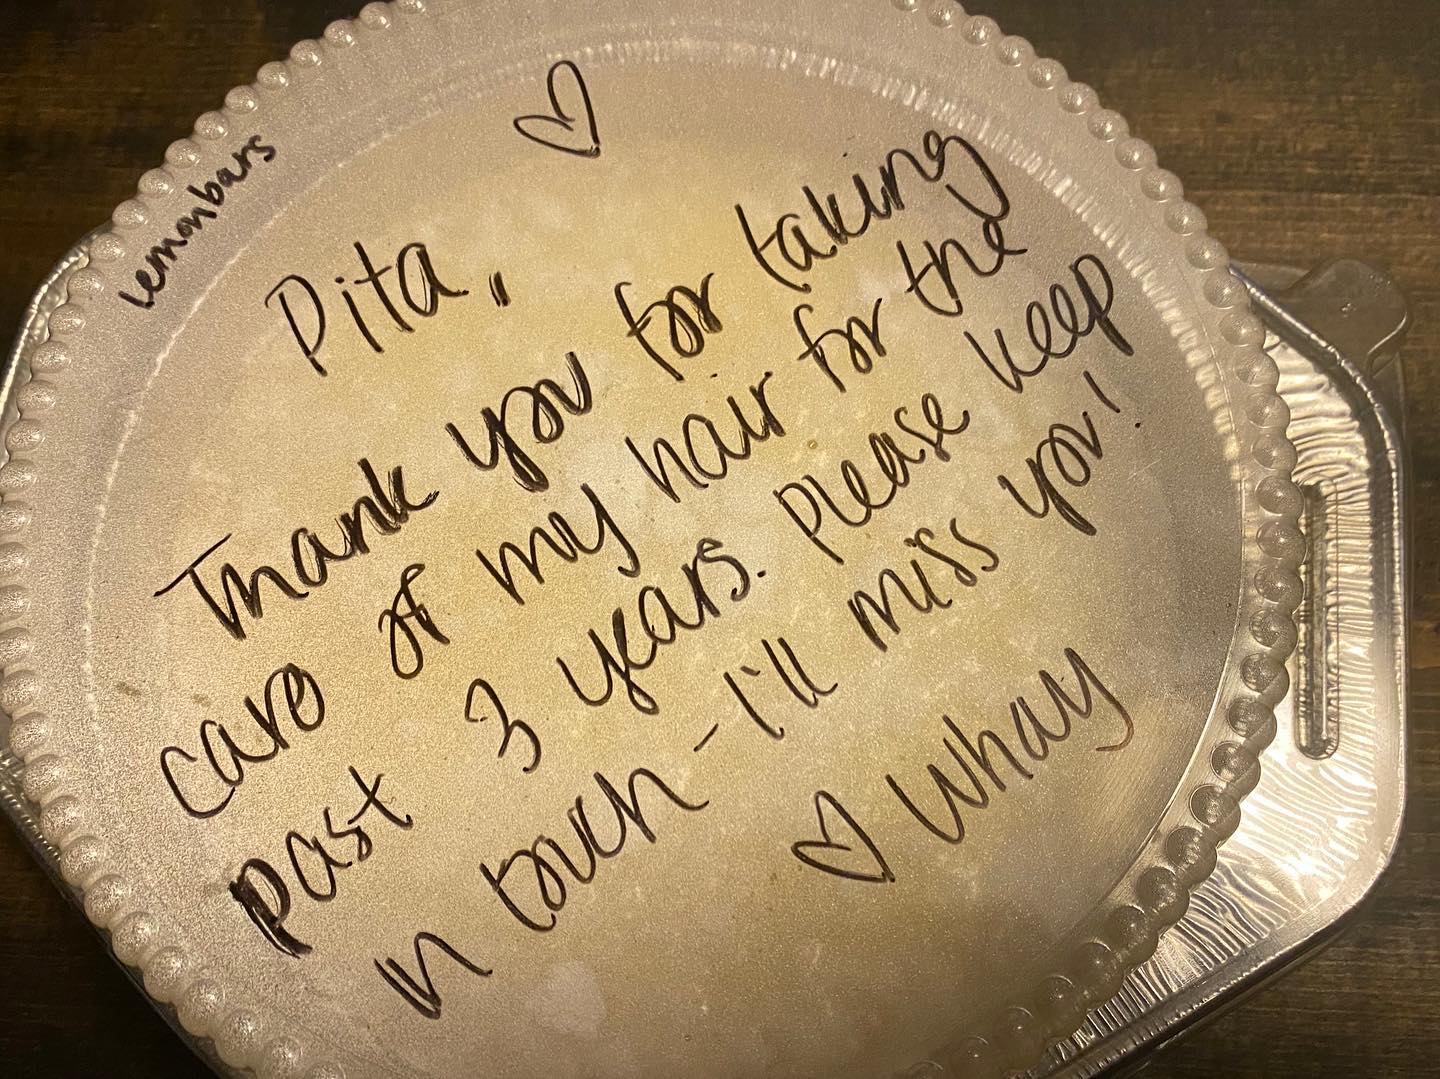 lemonbars
Pita,
Thank you for taking
care of my hair for the
past 3 years. Please keep
in touch - I'll miss you!
Whay